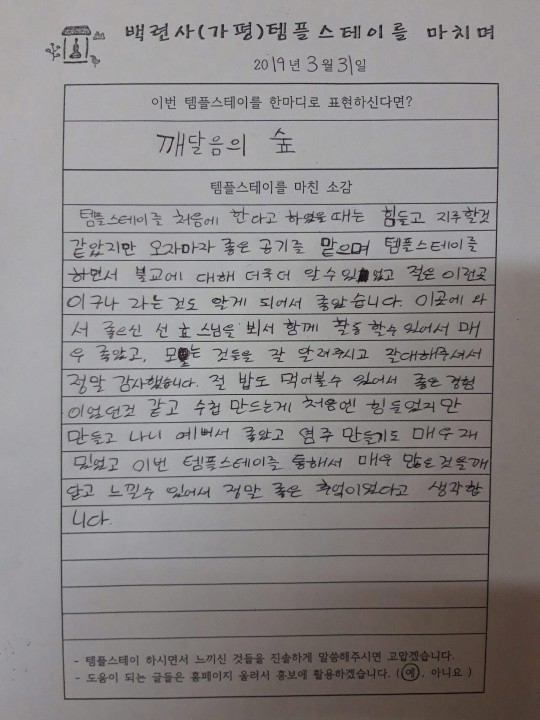 백련사(가평)템플스테이를 마치며
2019년 3월 31일
이번 템플스테이를 한마디로 표현하신다면?
깨달음의 숲
템플스테이를 마친 소감
템플스테이를 처음에 한다고 하였을때는 힘들고 지루할것
같았지만 오자마자 좋은 공기를 맡으며 템플스테이를
하면서 불교에 대해 더욱더 알수있었고 절은 이런곳
이구나 라는것도 알게 되어서 좋았습니다. 이곳에 와
서 좋으신 선효 스님을 뵈서 함께 활동 할수 있어서 매
우 좋았고, 모르는 것들을 잘 알려주시고 잘대해주셔서
정말 감사했습니다. 절 밥도 먹어볼수 있어서 좋은 경험
이었던것 같고 수첩 만드는게 처음엔 힘들었지만
만들고 나니 예뻐서 좋았고 염주 만들기도 매우 재
밌었고 이번 템플스테이를 통해서 매우 많은 것을깨
닫고 느낄수 있어서 정말 좋은 추억이었다고 생각합
니다.
- 템플스테이 하시면서 느끼신 것들을 진솔하게 말씀해주시면 고맙겠습니다.
- 도움이 되는 글들은 홈페이지 올려서 홍보에 활용하겠습니다. (예. 아니요 )